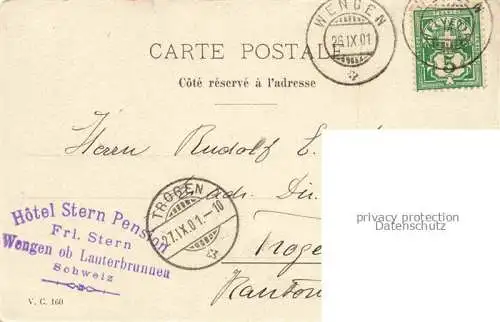 WENGEN
26.IX.01
CARTE POSTALE
5
Côté réservé à l'adresse
Herrn Rudolf E.
TROGEN
27.IX.01.-10
Dir.
Troge
Kanton
Hôtel Stern Pension
Frl. Stern
Wengen ob Lauterbrunnen
Schweiz
V. C. 160
privacy protection
Datenschutz